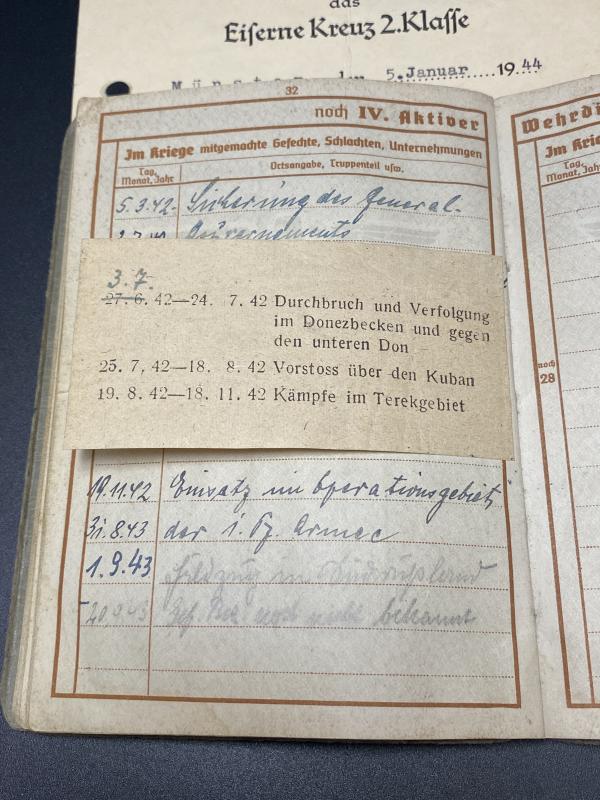 das
Eiserne Kreuz 2.Klasse
5.Januar 19 44
32
noch IV. Aktiver
Im Kriege mitgemachte Gefechte, Schlachten, Unternehmungen
Tag, Monat, Jahr
Ortsangabe, Truppenteil usw.
5.3.42. Sicherung des General-
Gouvernements
3.7.
27. 6. 42—24. 7. 42 Durchbruch und Verfolgung
im Donezbecken und gegen
den unteren Don
25. 7. 42—18. 8. 42 Vorstoss über den Kuban
19. 8. 42—18. 11. 42 Kämpfe im Terekgebiet
19.11.42 Einsatz im Operationsgebiet
31.8.43 der 1. Pz. Armee
1.9.43 Feldzug in Südrußland
20.9.43 noch nicht bekannt
noch
28